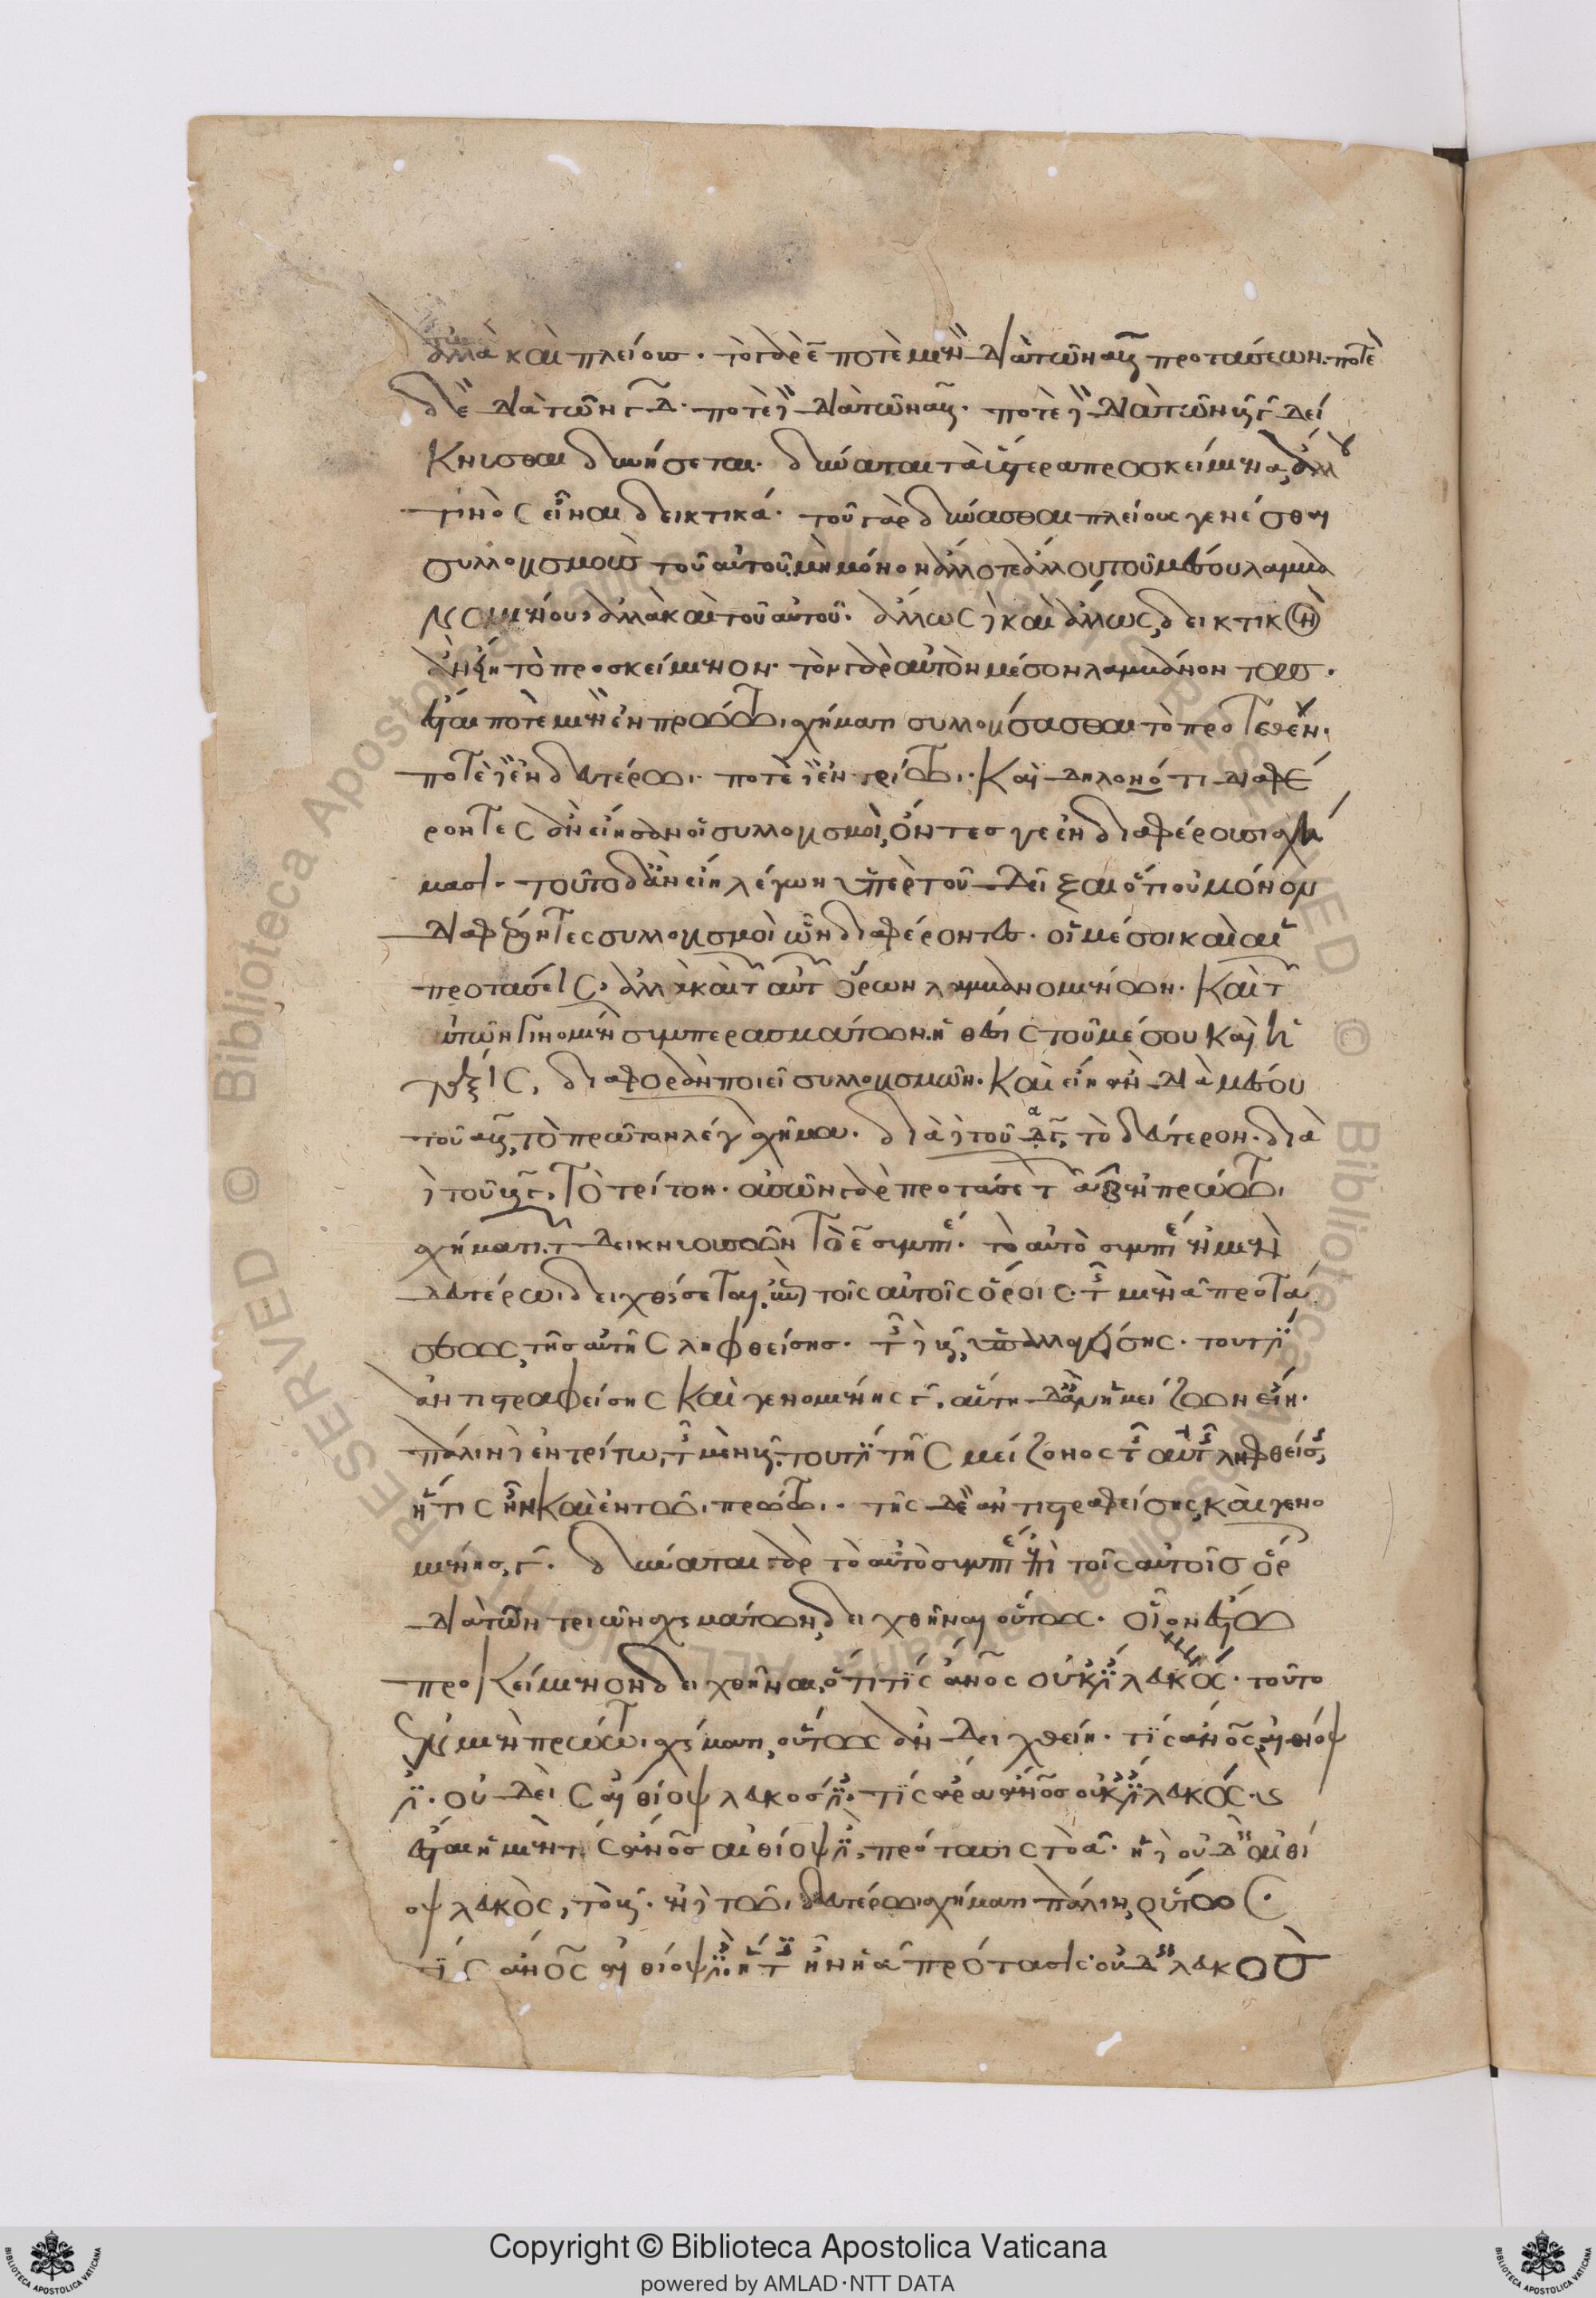 ἀλλὰ καὶ πλείους. τὸ γὰρ ε ποτὲ μὲν διὰ τῶν αβ προτάσεων. ποτὲ
δὲ διὰ τῶν γδ. ποτὲ δὲ διὰ τῶν αγ. ποτὲ δὲ διὰ τῶν βγ δεί
κνυσθαι δυνήσεται. δύναται τὰ ὕστερα προσκείμενα, ἄλλου
τινὸς εἶναι δεικτικά. τοῦ γὰρ δύνασθαι πλείους γενέσθαι
συλλογισμοὺς τοῦ αὐτοῦ, μὴ μόνον ἄλλοτε ἄλλου τοῦ μέσου λαμβα
νομένου, ἀλλὰ καὶ τοῦ αὐτοῦ. ἄλλως δὲ καὶ ἄλλως, δεικτικὸν
ἂν εἴη τὸ προσκείμενον. τὸν γὰρ αὐτὸν μέσον λαμβάνοντας.
ἔσται ποτὲ μὲν ἐν πρώτωι σχήματι συλλογίσασθαι τὸ προτεθέν.
ποτὲ δὲ ἐν δευτέρωι. ποτὲ δὲ ἐν τρίτωι. Καὶ δηλονότι διαφέ
ροντες ἂν εἴησαν οἱ συλλογισμοὶ, ὄντες γε ἐν διαφέρουσι σχή
μασι. τοῦτο δ' ἂν εἴη λέγων ὑπὲρ τοῦ δεῖξαι ὅτι οὐ μόνον
διαφέροντες συλλογισμοὶ ὧν διαφέροντες. οἱ μέσοι καὶ αἱ
προτάσεις, ἀλλὰ καὶ τῶν αὐτῶν ὅρων λαμβανομένων. Καὶ τῶν
αὐτῶν γινομένων συμπερασμάτων. ἡ θέσις τοῦ μέσου καὶ ἡ
τάξις, διαφορὰν ποιεῖ συλλογισμῶν. Καὶ εἴη ἂν διὰ μέσου
τοῦ αβ, τὸ πρῶτον λέγων σχῆμα. διὰ δὲ τοῦ αγ, τὸ δεύτερον. διὰ
δὲ τοῦ βγ, τὸ τρίτον. οὐσῶν γὰρ προτάσεων τῶν αβ ἐν πρώτωι
σχήματι, τῶν δεικνυουσῶν τὸ ε συμπέ. τὸ αὐτὸ συμπέ ἐν μὲν
δευτέρωι δειχθήσεται, ἐπὶ τοῖς αὐτοῖς ὅροις. τῆς μὲν α προτά
σεως, τῆς αὐτῆς ληφθείσης. τῆς δὲ β, ὑπαλλαγείσης. τουτέστιν
ἀντιστραφείσης καὶ γενομένης γ. αὕτη δ' ἂν ἡ μείζων εἴη.
πάλιν δὲ ἐν τρίτωι, τῆς μὲν β, τουτέστι τῆς μείζονος τῆς αὐτῆς ληφθείσης,
ἥτις ἦν καὶ ἐν τῶι πρώτωι. τῆς δὲ ἀντιστραφείσης, καὶ γενο
μένης, γ. δύναται γὰρ τὸ αὐτὸ συμπέ ἐπὶ τοῖς αὐτοῖς ὅροις
διὰ τῶν τριῶν σχημάτων, δειχθῆναι οὕτως. οἷον ἔστω
προκείμενον δειχθῆναι, ὅτι τὶς ἄνος οὐκ ἔστι λευκός. τοῦτο
ἐν μὲν πρώτωι σχήματι, οὕτως ἂν δειχθείη. τὶς ἄνος, αἰθίοψ
ἐστίν. οὐδεὶς αἰθίοψ λευκός ἐστιν. τὶς ἄρα ἄνος οὐκ ἔστι λευκός. καὶ
ἔσται ἡ μὲν τὶς ἄνος αἰθίοψ ἐστί, πρότασις τὸ α. ἡ δὲ οὐδεὶς αἰθί
οψ λευκὸς, τὸ β. ἐν δὲ τῶι δευτέρωι σχήματι πάλιν, οὕτως.
τὶς ἄνος αἰθίοψ ἐστίν. ἥτις ἦν ἡ α πρότασις. οὐδεὶς λευκὸς